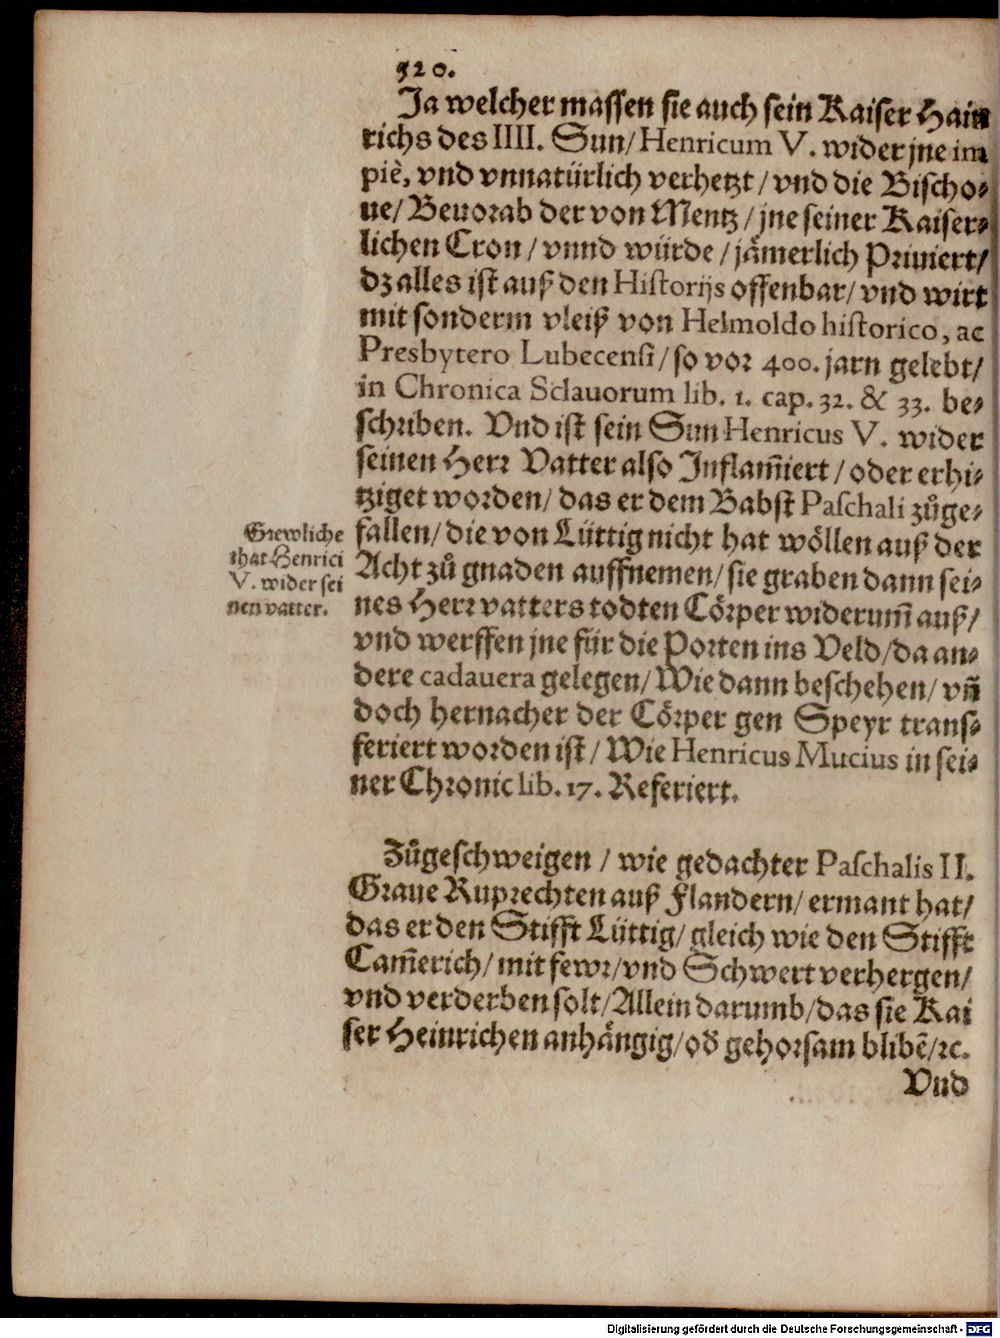 520.
Ja welcher massen sie auch sein Kaiser Hain
richs des IIII. Sun/ Henricum V. wider jne im
piè, vnd vnnatürlich verhetzt / vnd die Bischo-
ue/ Beuorab der von Mentz / jne seiner Kaiser-
lichen Cron / vnnd würde / jämerlich Priuiert/
dz alles ist auß den Historijs offenbar/ vnd wirt
mit sonderm vleiß von Helmoldo historico, ac
Presbytero Lubecensi / so vor 400. jarn gelebt/
in Chronica Sclauorum lib. 1. cap. 32. & 33. be-
schriben. Vnd ist sein Sun Henricus V. wider
seinen Herr Vatter also Inflam̃iert / oder erhi-
tziget worden/ das er dem Babst Paschali zůge-
fallen/ die von Lüttig nicht hat wöllen auß der
Acht zů gnaden auffnemen/ sie graben dann sei-
nes Herr vatters todten Cörper widerum̃ auß/
vnd werffen jne für die Porten ins Veld/ da an-
dere cadauera gelegen/ Wie dann beschehen/ vñ
doch hernacher der Cörper gen Speyr trans-
feriert worden ist / Wie Henricus Mucius in sei-
ner Chronic lib. 17. Referiert.
Grewliche
that Henrici
V. wider sei
nen vatter.
Zůgeschweigen / wie gedachter Paschalis II.
Graue Ruprechten auß Flandern/ ermant hat/
das er den Stifft Lüttig/ gleich wie den Stifft
Cam̃erich/ mit fewr/ vnd Schwert verhergen/
vnd verderben solt/ Allein darumb/ das sie Kai
ser Heinrichen anhängig/ od̃ gehorsam blibẽ/ ꝛc.
Vnd
Digitalisierung gefördert durch die Deutsche Forschungsgemeinschaft - DFG